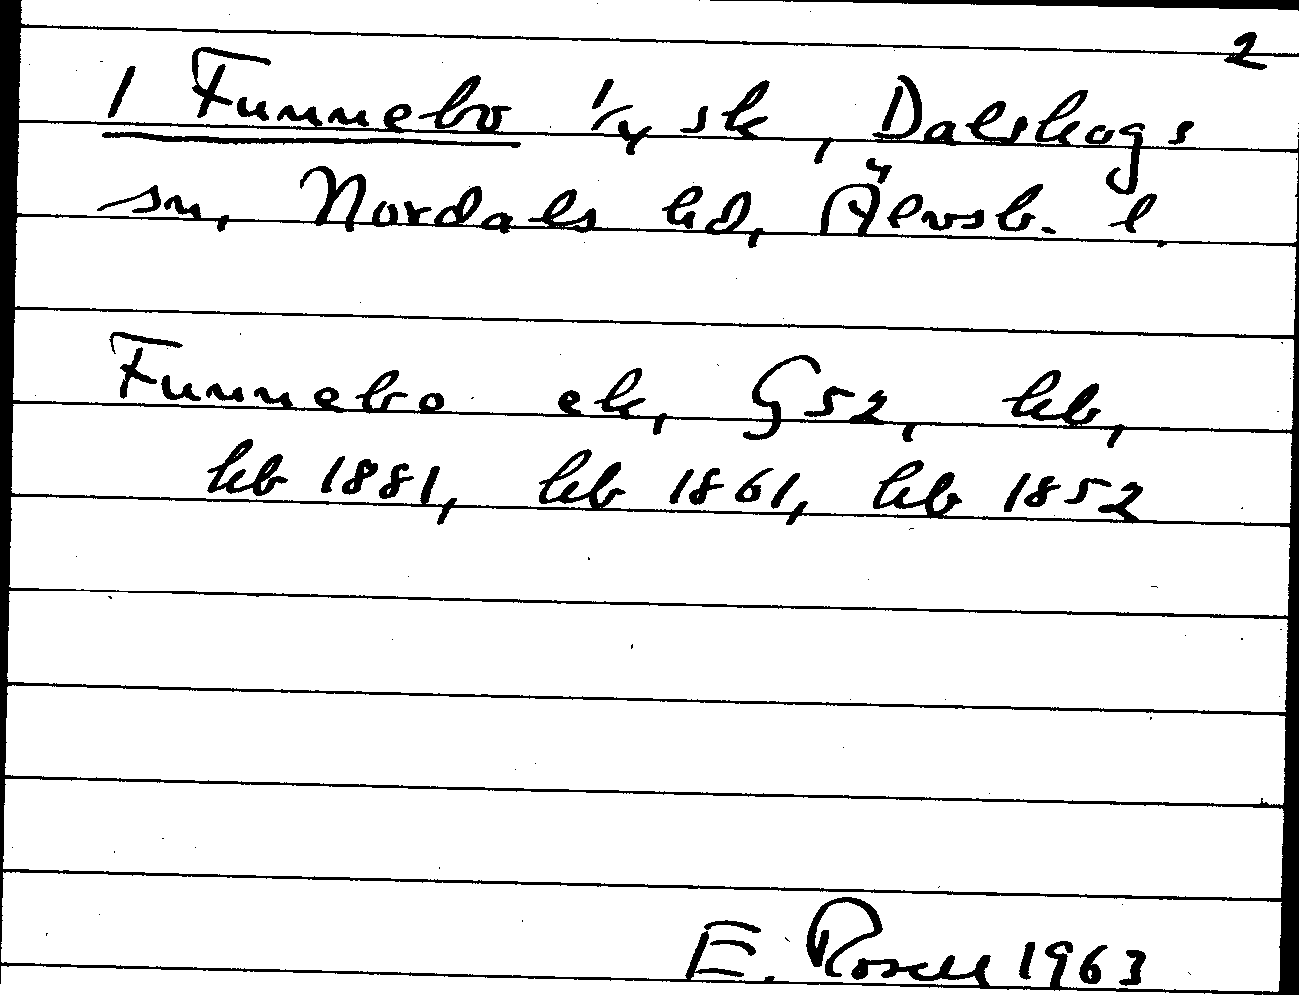 2
1 Funnebo 1/4 sk, Dalskogs
sn, Nordals hd, Älvsb. l.
Funnebo ek, G52, kb,
hb 1881, hb 1861, hb 1852
E. Rosell 1963